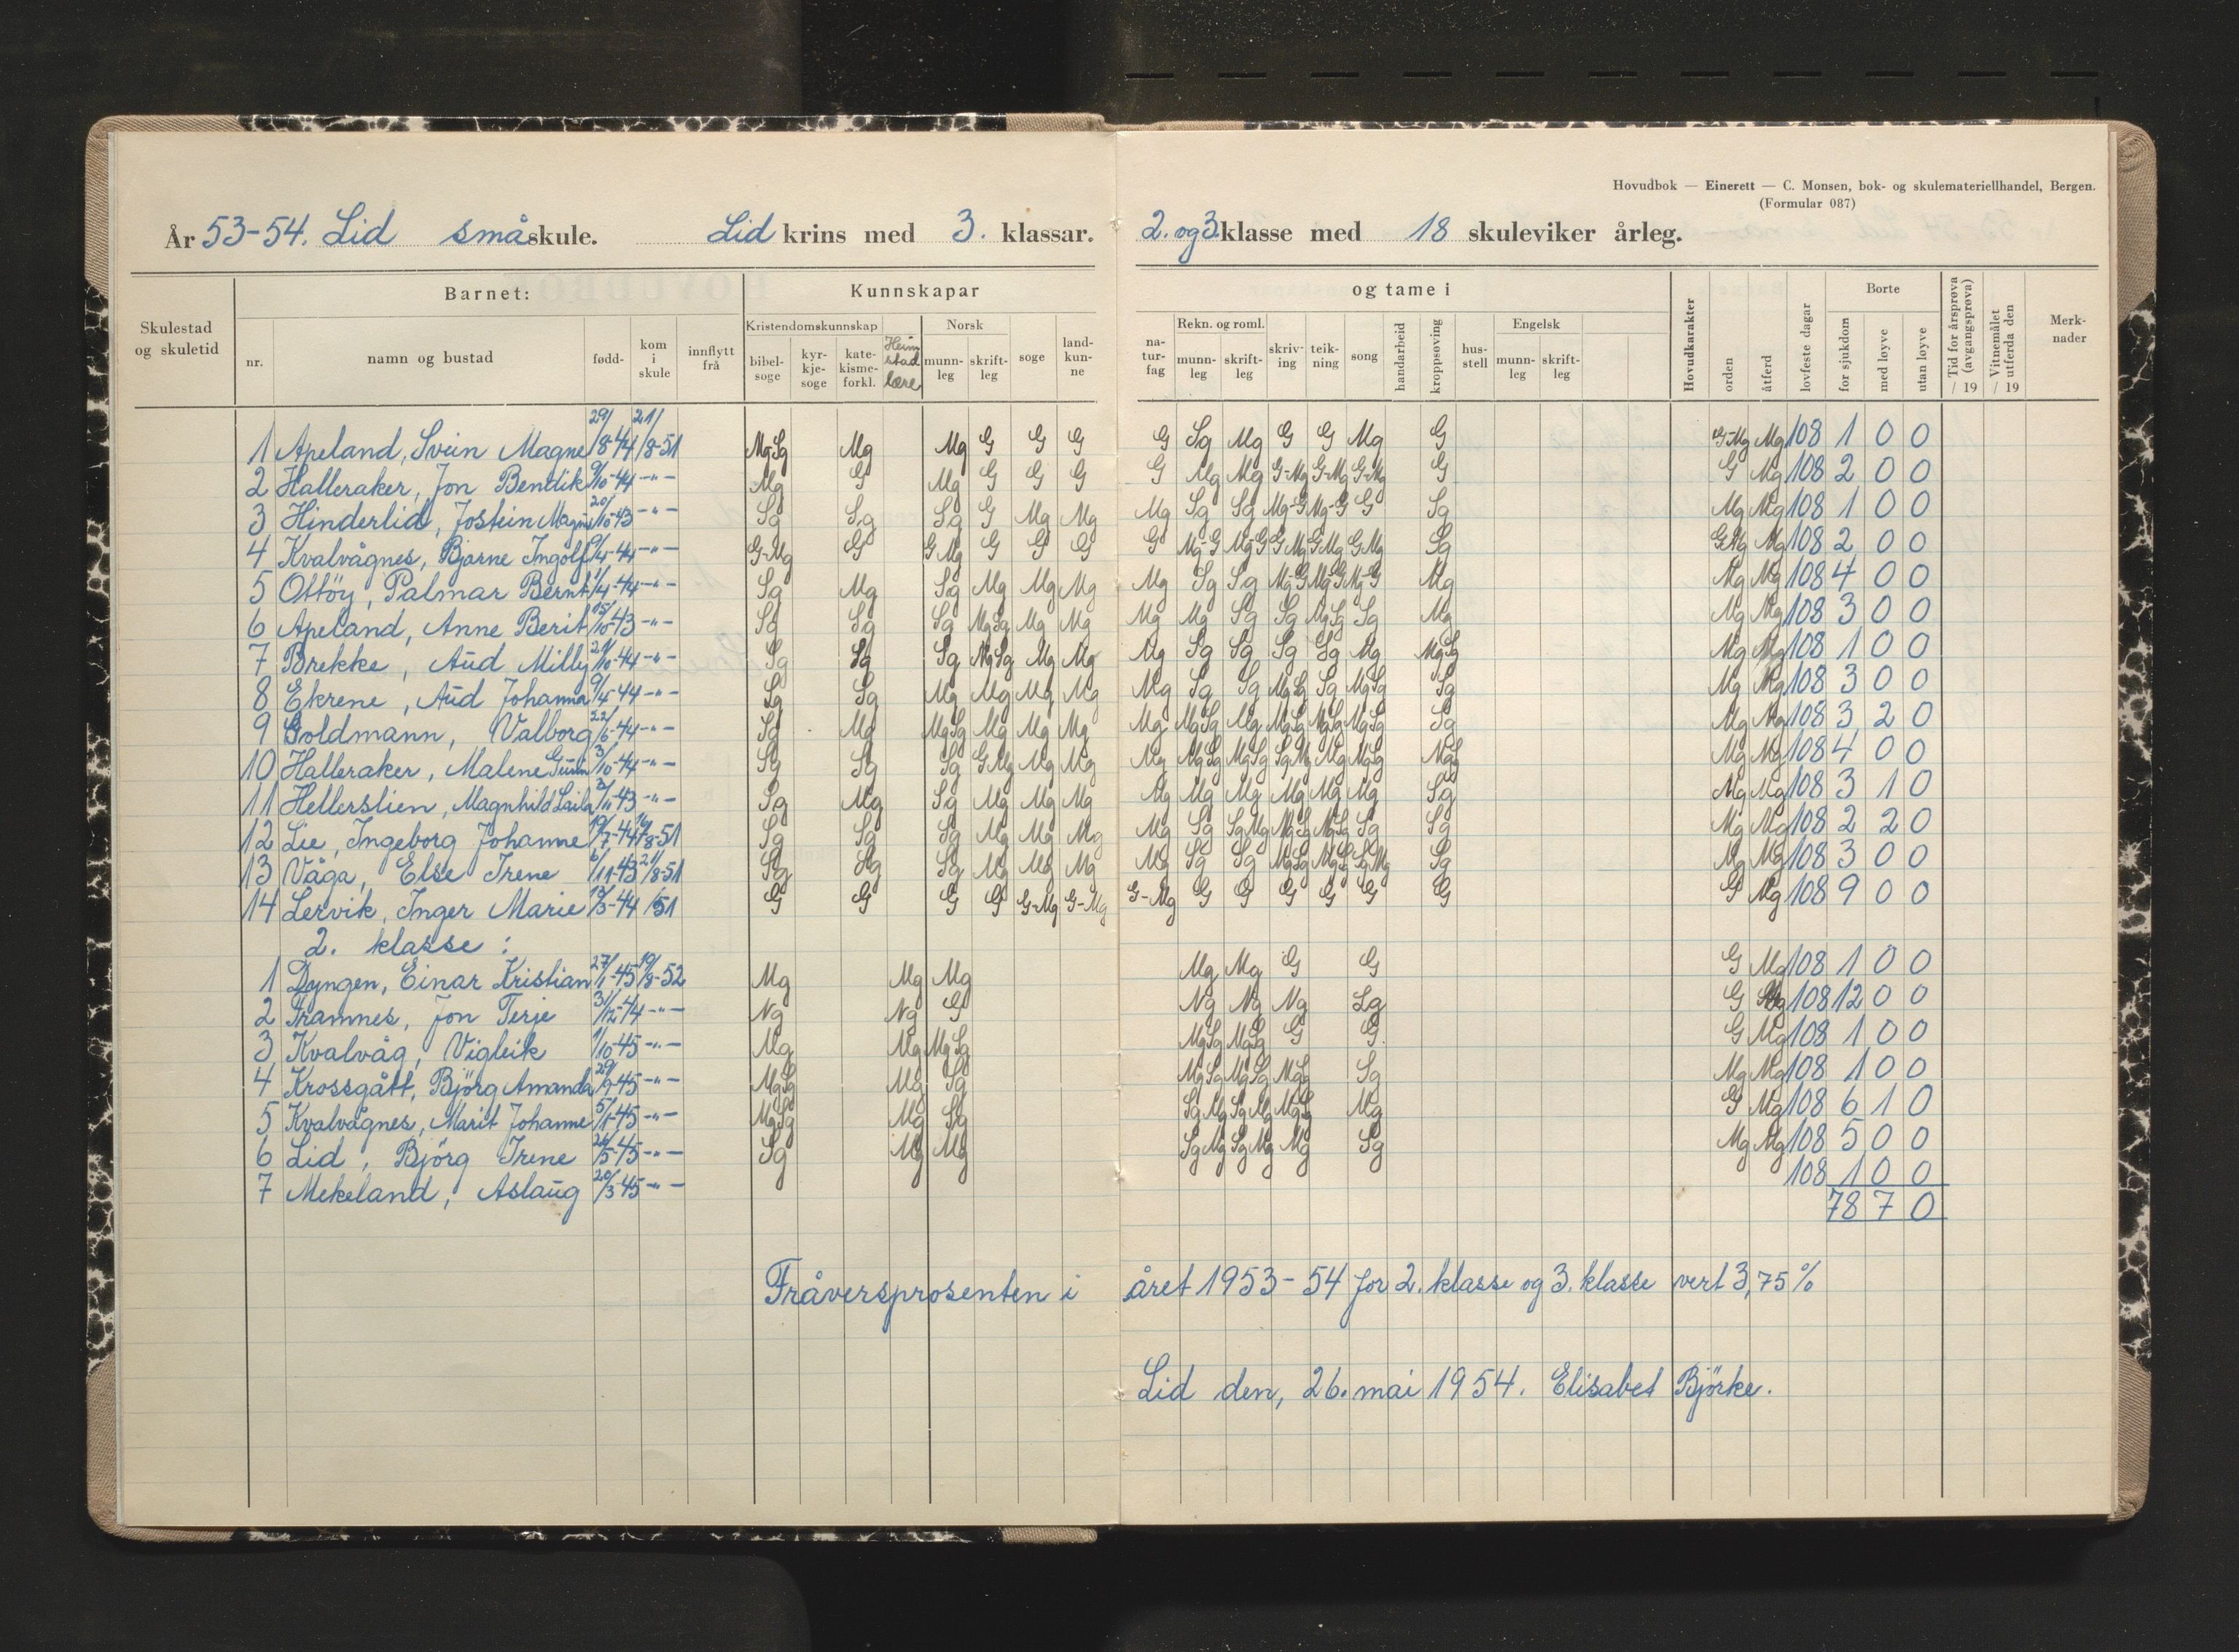 Hovudbok — Einerett — C. Monsen, bok- og skulemateriellhandel, Bergen.
(Formular 087)
År 53-54. Lid småskule. Lid krins med 3. klassar. 2. og 3. klasse med 18 skuleviker årleg.
Skulestad og skuletid
Barnet:
nr. namn og bustad fødd- kom i skule innflytt frå
Kunnskapar og tame i
Kristendomskunnskap
bibelsoge kyrkjesoge katekismeforkl. Heimstadlære
Norsk
munnleg skriftleg soge landkunne
naturfag
Rekn. og roml.
munnleg skriftleg skriving teikning song handarbeid kroppsøving husstell
Engelsk
munnleg skriftleg
Hovudkarakter orden åtferd lovfeste dagar
Borte
for sjukdom med løyve utan løyve
Tid for årsprøva (avgangsprøva) / 19
Vitnemålet utferda den / 19
Merknader
1 Apeland, Svein Magne 29/8-44 21/8-51 MgSg Mg Mg G G G G Sg Mg G G Mg G G-Mg Mg 108 1 0 0
2 Halleraker, Jon Bendik 9/10-44 -"- Mg G Mg G G G G Mg Mg G-Mg G-Mg G-Mg G G Mg 108 2 0 0
3 Hinderlid, Jostein Magne 20/10-43 -"- Sg Sg Sg G Mg Mg Mg Sg Sg Mg-G Mg-G G Sg Mg Mg 108 1 0 0
4 Kvalvågnes, Bjarne Ingolf 9/4-44 -"- G-Mg G GMg G G G G Mg-G Mg-G GMg GMg GMg Sg GMg Mg 108 2 0 0
5 Ottöy, Palmar Bernt 1/4-44 -"- Sg Mg Sg Mg Mg Mg Mg Sg Sg Mg-G Mg-G Mg-G Mg Mg Mg 108 4 0 0
6 Apeland, Anne Berit 15/10-43 -"- Sg Sg Sg MgSg Mg Mg Mg Mg Sg Sg MgSg Sg Mg Mg Mg 108 3 0 0
7 Brekke, Aud Milly 29/10-44 -"- Sg Sg Sg MgSg Mg Mg Mg Sg Sg Sg Sg Mg MgSg Mg Mg 108 1 0 0
8 Ekrene, Aud Johanna 9/4-44 -"- Sg Sg Mg Mg Mg Mg Mg Sg Sg MgSg Sg MgSg Sg Mg Mg 108 3 0 0
9 Goldmann, Valborg 22/6-44 -"- Sg Mg MgSg Mg Mg Mg Mg MgSg Mg MgSg MgSg MgSg Sg Mg Mg 108 3 2 0
10 Halleraker, Malene 3/10-44 -"- Sg Sg Sg GMg Mg Mg Mg MgSg MgSg SgMg Mg MgSg MgSg Mg Mg 108 4 0 0
11 Hellerslien, Magnhild Laila 3/11-43 -"- Sg Mg Sg Mg Mg Mg Mg Mg Mg Mg Mg Mg Sg Mg Mg 108 3 1 0
12 Lie, Ingeborg Johanne 19/7-44 19/8-51 Sg Sg Sg Mg Mg Mg Mg Sg SgMg MgSg MgSg Sg Sg Mg Mg 108 2 2 0
13 Våga, Else Irene 6/11-43 21/8-51 Sg Sg Sg Mg Mg Mg Mg Sg Sg MgSg MgSg SgMg Sg Mg Mg 108 3 0 0
14 Lervik, Inger Marie 13/3-44 /51 G G G G G-Mg G-Mg G-Mg G G G G G G G Mg 108 9 0 0
2. klasse:
1 Dyngen, Einar Kristian 27/1-45 19/8-52 Mg Mg Mg Mg Mg G G G Mg 108 1 0 0
2 Framnes, Jon Terje 31/12-44 -"- Ng Ng G Ng Ng Ng Lg G Mg 108 12 0 0
3 Kvalvåg, Vigleik 1/10-45 -"- Mg Mg MgSg MgSg MgSg G G G Mg 108 1 0 0
4 Krossgått, Björg Amanda 29/9-45 -"- MgSg Mg Sg MgSg MgSg MgSg Sg Mg Mg 108 1 0 0
5 Kvalvågnes, Marit Johanne 5/1-45 -"- MgSg Mg Sg SgMg SgMg MgSg Mg G Mg 108 6 1 0
6 Lid, Björg Irene 24/5-45 -"- Sg Mg Mg SgMg SgMg Mg Sg Mg Mg 108 5 0 0
7 Mekeland, Aslaug 20/3-45 -"- 108 1 0 0
78 7 0
Fråversprosenten i året 1953-54 for 2. klasse og 3. klasse vert 3,75 %
Lid den, 26. mai 1954. Elisabet Björke.